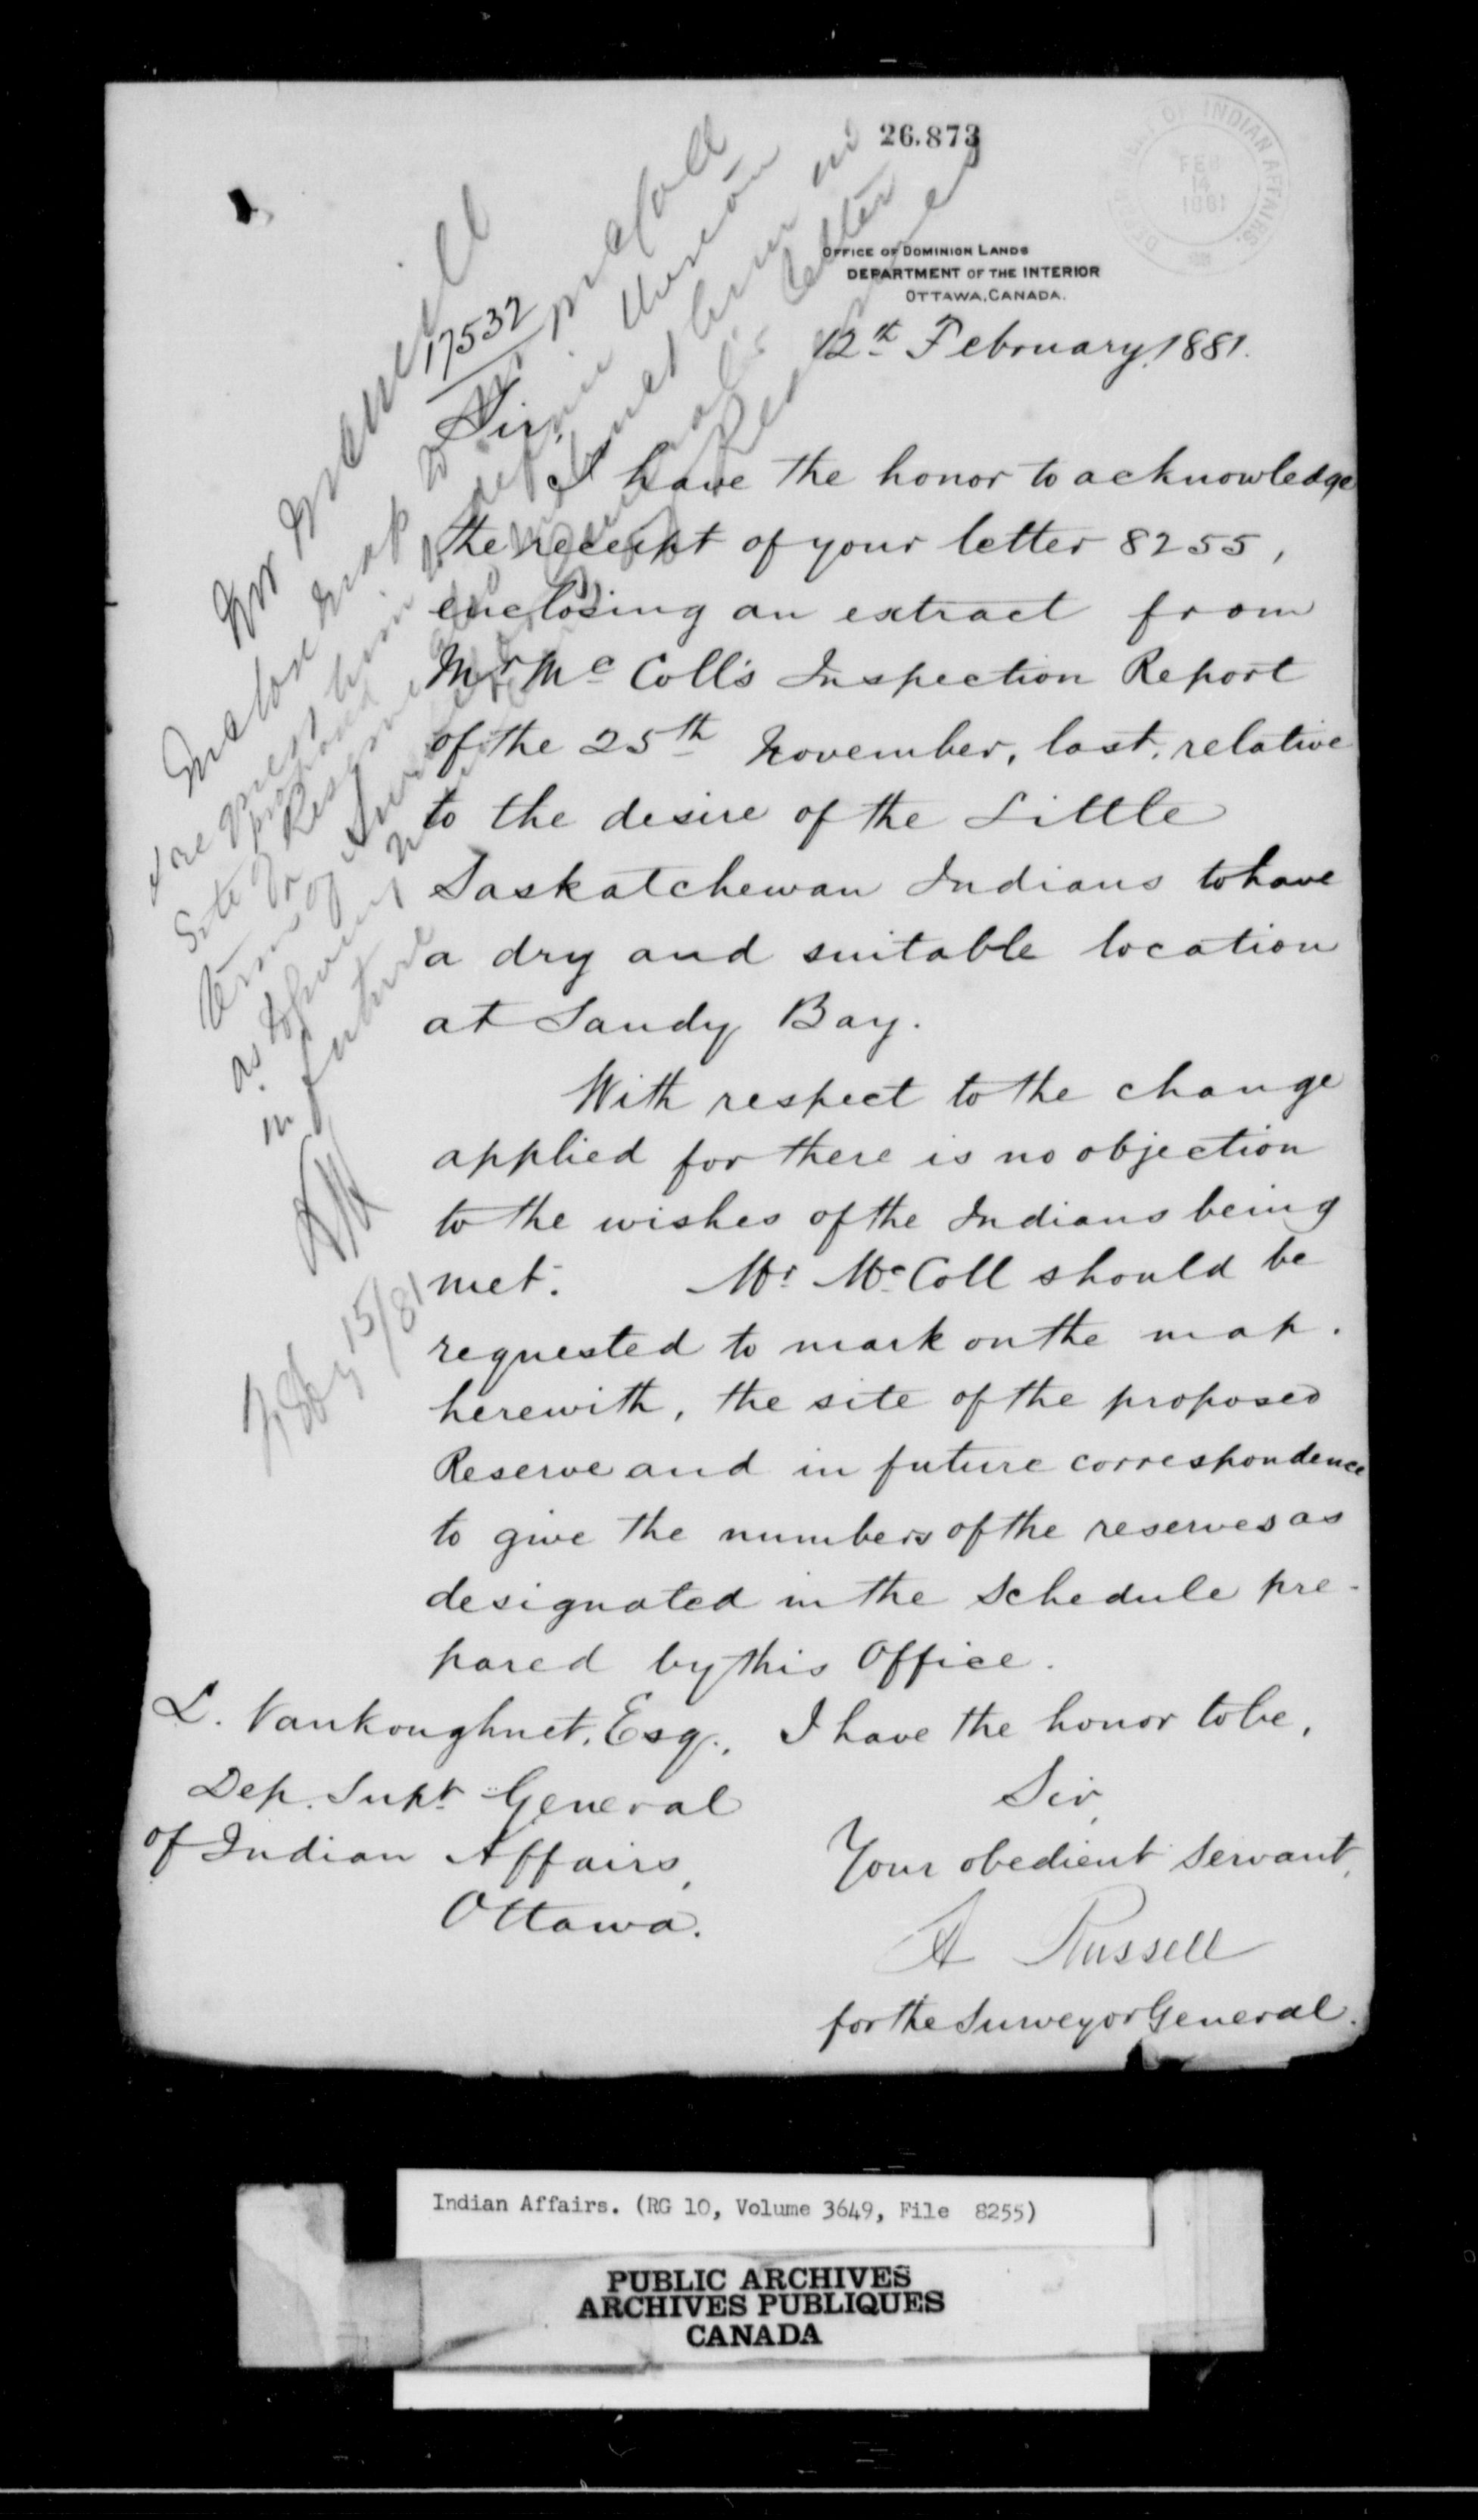 26.873
DEPARTMENT OF INDIAN AFFAIRS.
FEB
14
1881
OFFICE OF DOMINION LANDS
DEPARTMENT OF THE INTERIOR
OTTAWA, CANADA.
12th February, 1881.
17532
Sir,
I have the honor to acknowledge
the receipt of your letter 8255,
enclosing an extract from
Mr McColl's Inspection Report
of the 25th November, last, relative
to the desire of the Little
Saskatchewan Indians to have
a dry and suitable location
at Sandy Bay.
With respect to the change
applied for there is no objection
to the wishes of the Indians being
met. Mr McColl should be
requested to mark on the map.
herewith, the site of the proposed
Reserve and in future correspondence
to give the numbers of the reserves as
designated in the Schedule pre-
pared by this Office.
I have the honor to be,
Sir,
Your obedient Servant,
A Russell
for the Surveyor General.
L. Vankoughnet, Esq.,
Dep. Supt General
of Indian Affairs,
Ottawa.
Mr McNeill
Enclose map to Mr McColl
& request him to define thereon
site of proposed
in future
Feby 15/81
Indian Affairs. (RG 10, Volume 3649, File 8255)
PUBLIC ARCHIVES
ARCHIVES PUBLIQUES
CANADA